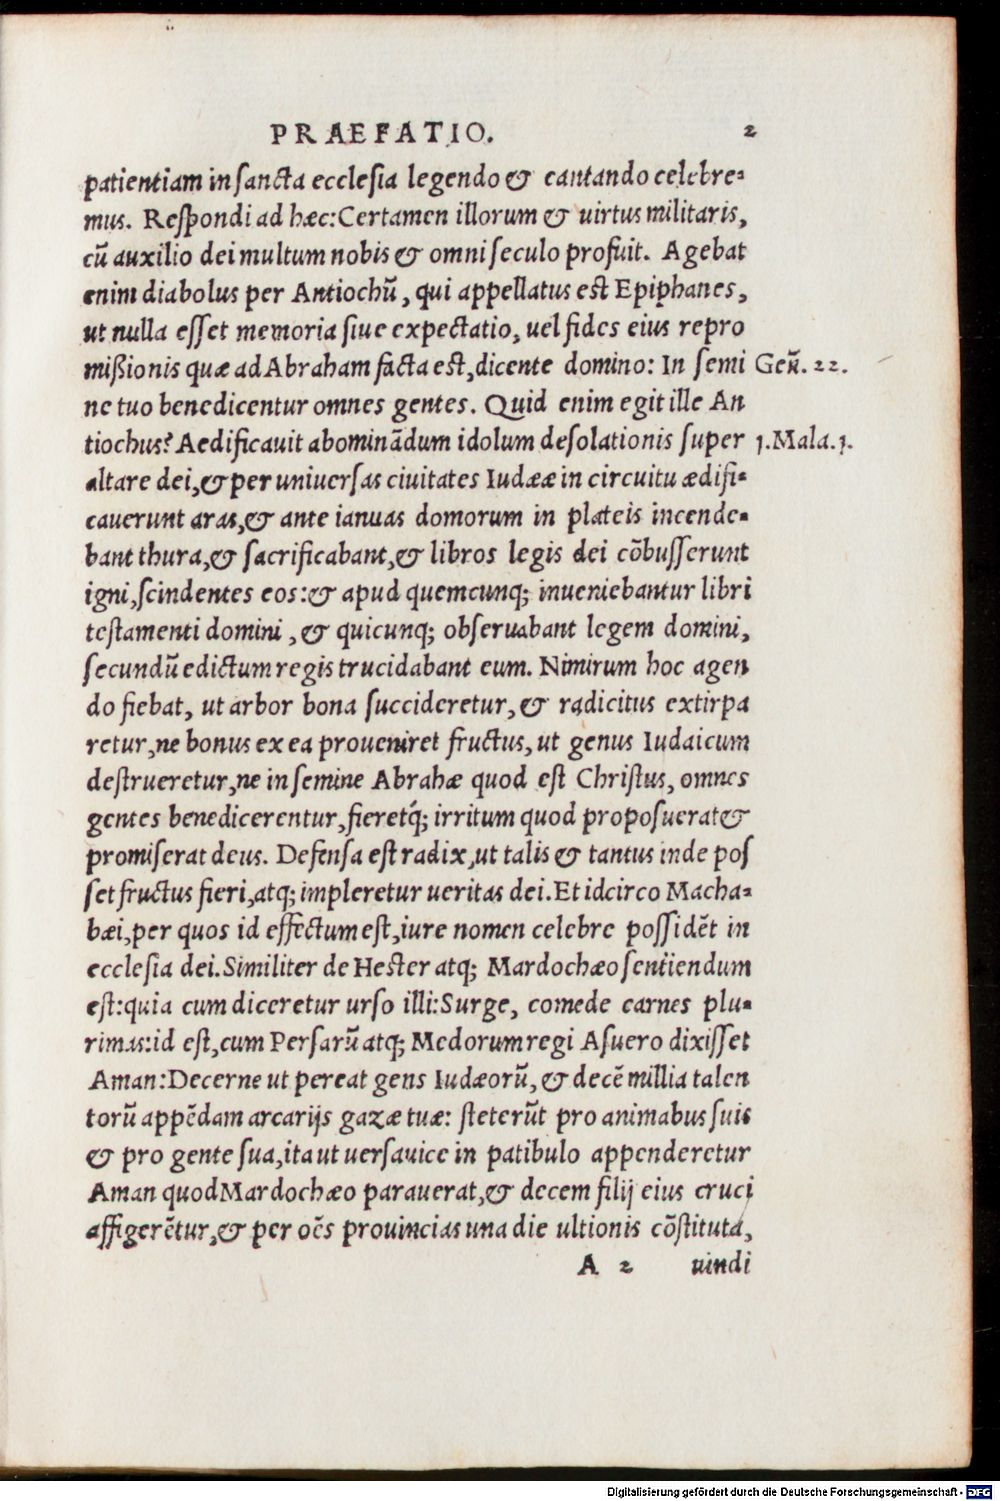 PRAEFATIO. 2
patientiam in sancta ecclesia legendo & cantando celebre-
mus. Respondi ad hæc: Certamen illorum & uirtus militaris,
cū auxilio dei multum nobis & omni seculo profuit. Agebat
enim diabolus per Antiochū, qui appellatus est Epiphanes,
ut nulla esset memoria siue expectatio, uel fides eius repro
mißionis quæ ad Abraham facta est, dicente domino: In semi Geñ. 22.
ne tuo benedicentur omnes gentes. Quid enim egit ille An
tiochus? Aedificauit abominādum idolum desolationis super 1.Mala.1.
altare dei, & per uniuersas ciuitates Iudææ in circuitu ædifi-
cauerunt aras, & ante ianuas domorum in plateis incende-
bant thura, & sacrificabant, & libros legis dei cōbusserunt
igni, scindentes eos: & apud quemcunq; inueniebantur libri
testamenti domini, & quicunq; obseruabant legem domini,
secundū edictum regis trucidabant eum. Nimirum hoc agen
do fiebat, ut arbor bona succideretur, & radicitus extirpa
retur, ne bonus ex ea proueniret fructus, ut genus Iudaicum
destrueretur, ne in semine Abrahæ quod est Christus, omnes
gentes benedicerentur, fieretq́; irritum quod proposuerat &
promiserat deus. Defensa est radix, ut talis & tantus inde pos
set fructus fieri, atq; impleretur ueritas dei. Et idcirco Macha-
bæi, per quos id effectum est, iure nomen celebre possidēt in
ecclesia dei. Similiter de Hester atq; Mardochæo sentiendum
est: quia cum diceretur urso illi: Surge, comede carnes plu-
rimas: id est, cum Persarū atq; Medorum regi Asuero dixisset
Aman: Decerne ut pereat gens Iudæorū, & decē millia talen
torū appēdam arcarijs gazæ tuæ: steterūt pro animabus suis
& pro gente sua, ita ut uersa uice in patibulo appenderetur
Aman quod Mardochæo parauerat, & decem filij eius cruci
affigerētur, & per oēs prouincias una die ultionis cōstituta,
A 2 uindi
Digitalisierung gefördert durch die Deutsche Forschungsgemeinschaft - DFG